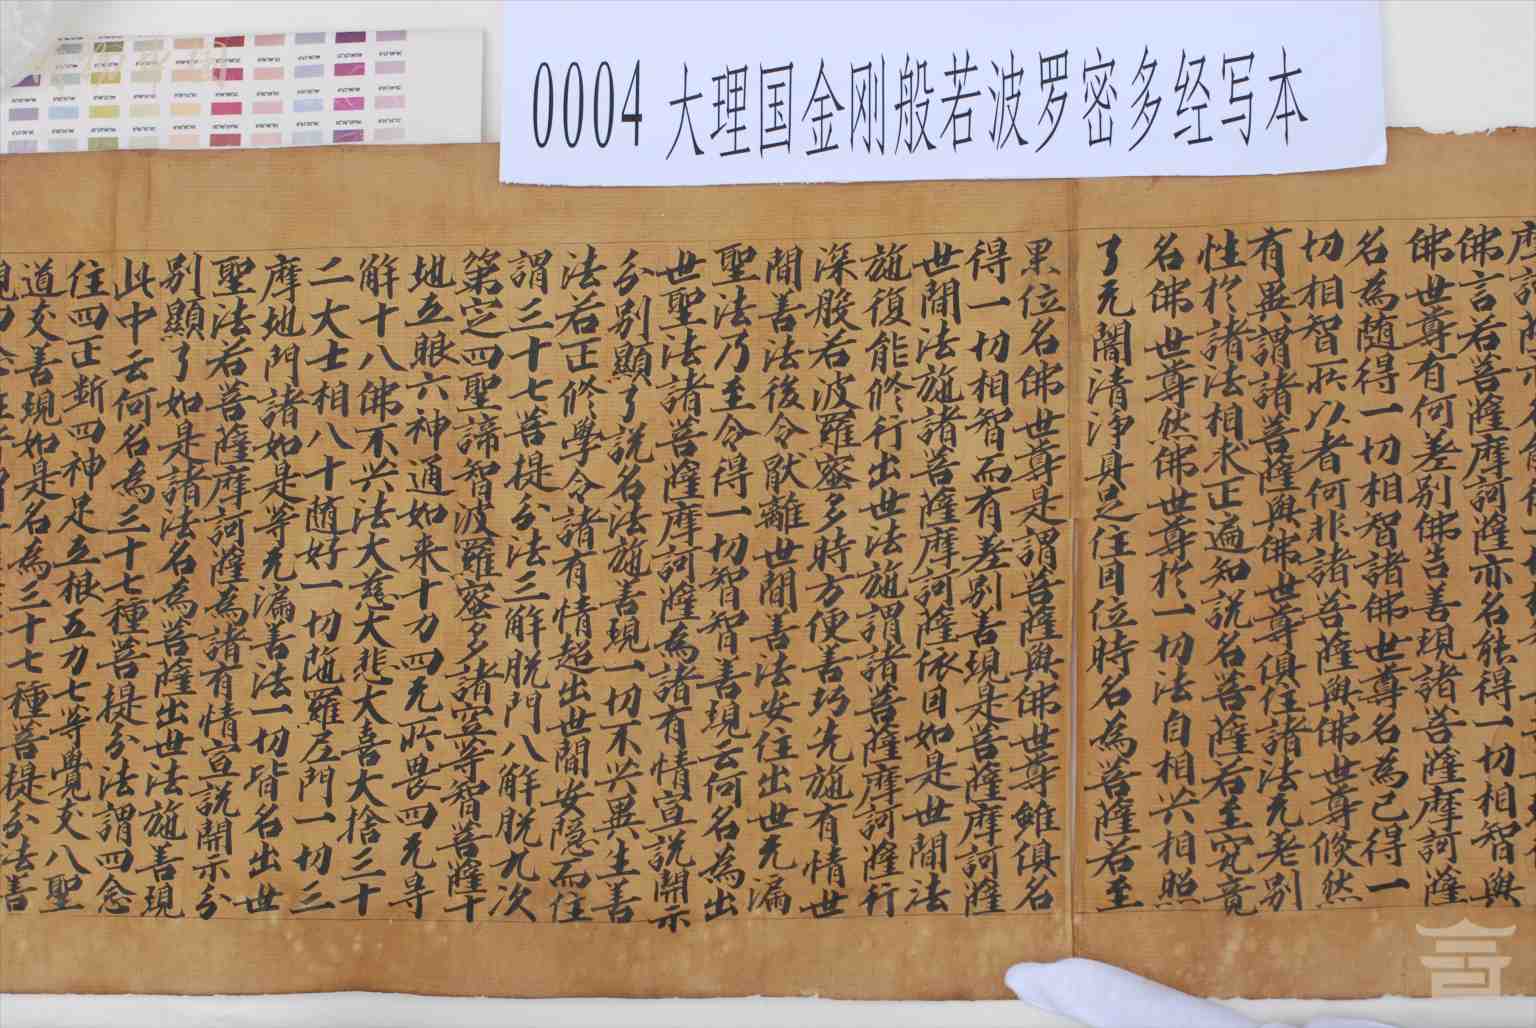 0004 大理国金刚般若波罗密多经写本
佛言若菩薩摩訶薩亦名能得一切相智與
佛世尊有何差别佛告善現諸菩薩摩訶薩
名為随得一切相智諸佛世尊名為已得一
切相智所以者何非諸菩薩與佛世尊倏然
有異謂諸菩薩與佛世尊俱住諸法无差别
性於諸法相求正遍知説名菩薩若至究竟
名佛世尊然佛世尊於一切法自相共相照
了无闇清淨真足住因位時名為菩薩若至
果位名佛世尊是謂菩薩與佛世尊雖俱名
得一切相智而有差别善現是菩薩摩訶薩
世間法施諸菩薩摩訶薩依因如是世間法
施復能修行出世法施謂諸菩薩摩訶薩行
深般若波羅蜜多時方便善巧先施有情世
間善法後令猒離世間善法安住出世无漏
聖法乃至令得一切智智善現云何名為出
世聖法諸菩薩摩訶薩為諸有情宣説開示
分别顯了説名法施善現一切不共異生善
法若正修學令諸有情超出世間安隱而住
謂三十七菩提分法三解脱門八解脱九次
第定四聖諦智波羅蜜多諸空等智菩薩十
地五眼六神通如来十力四无所畏四无导
解十八佛不共法大慈大悲大喜大捨三十
二大士相八十随好一切陁羅尼門一切三
摩地門諸如是等无漏善法一切皆名出世
聖法若菩薩摩訶薩為諸有情宣説開示分
别顯了如是諸法名為菩薩出世法施善現
此中云何名為三十七種菩提分法謂四念
住四正断四神足五根五力七等覺支八聖
道支善現如是名為三十七種菩提分法善